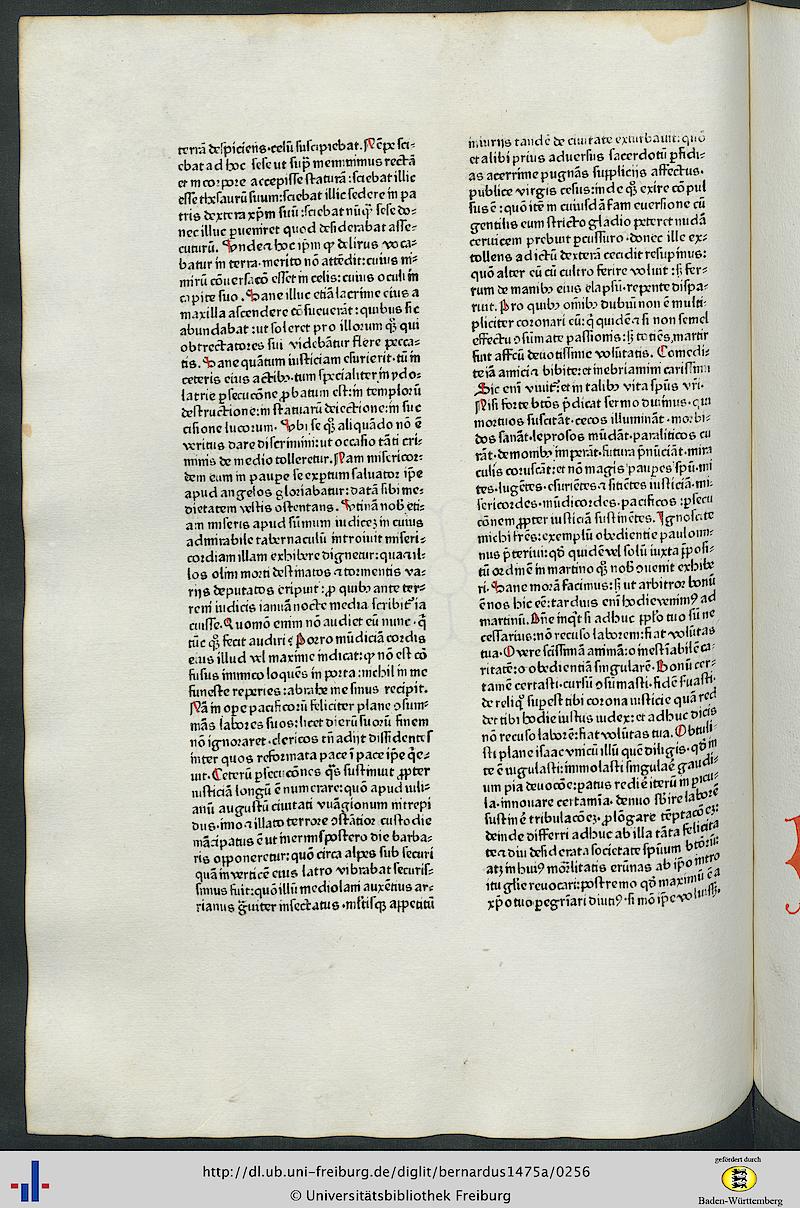 terrā despiciens·celū suscipiebat. Nēpe sci⸗
ebat ad hoc sese ut sup̄ meminimus rectā
et in corpore accepisse staturā:sciebat illic
esse thesaurū suum:sciebat illic sedere in pa
tris dextera xp̄m suū:sciebat nūq̄ sese do⸗
nec illuc ꝑueniret quod desiderabat asse⸗
cuturū. Unde ⁊ hoc ip̄m ꝙ delirus voca⸗
batur in terra·merito nō attēdit:cuius ni⸗
mirū cōuersacō esset in celis:cuius oculi in
capite suo. Sane illuc etiā lacrime eius a
maxilla ascendere cōsueuerāt:quibus sic
abundabat:ut soleret pro illorum qꝫ qui
obtrectatores sui videbātur flere pecca⸗
tis. Sane quātum iusticiam esurierit·tū in
ceteris eius actibꝰ·tum specialiter in ydo⸗
latrie ꝑsecucōne ꝓbatum est:in templorū
destructione:in statuarū deiectione:in suc
cisione lucorum. Ubi se qꝫ aliquādo nō ē
veritus dare discrimini:ut occasio tāti cri⸗
minis de medio tolleretur. Nam misericor⸗
dem eum in paupe se exptum saluator ip̄e
apud angelos gloriabatur:datā sibi me⸗
dietatem vestis ostentans. Utinā nob̄ eti⸗
am miseris apud sūmum iudicez in cuius
admirabile tabernaculū introiuit miseri⸗
cordiam illam exhibere dignetur:qua ⁊ il⸗
los olim morti destinatos ⁊ tormentis va⸗
rijs deputatos eripuit:ꝓ quibꝰ ante ter⸗
reni iudicis ianuā nocte media scribit᷑ ia
cuisse. Quomō enim nō audiet eū nunc·q̄
tūc qꝫ fecit audiri? Porro mūdiciā cordis
eius illud vel maxime indicat:ꝙ nō est cō
fusus inimico loquēs in porta:nichil in me
funeste reperies:abrahe me sinus recipit.
Nā in ope pacificorū feliciter plane ꝯsum⸗
māns labores suos:licet dierū suorū finem
nō ignoraret·clericos tn̄ adijt dissidentes
inter quos reformata pace ī pace ip̄e q̄e⸗
uit. Ceterū ꝑsecucōnes q̄s sustinuit ꝓpter
iusticiā longū ē numerare:quō apud iuli⸗
anū augustū ciuitati vuāgionum intrepi
dus·imo ⁊ illato terrore ꝯstātior·custodie
mācipatus ē ut inermis postero die barba⸗
ris opponeretur:quō circa alpes sub securi
quā in verticē eius latro vibrabat securis⸗
simus fuit:quō illū mediolani auxētius ar⸗
rianus grauiter insectatus·mltisqꝫ appetitū
iniurijs tandē de ciuitate exturbauit:quō
et alibi prius aduersus sacerdotū ꝑfidi⸗
as acerrime pugnās supplicijs affectus·
publice virgis cesus:inde qꝫ exire cōpul
sus ē:quō itē in cuiusdā fam euersione cū
gentilis eum stricto gladio peteret nudā
ceruicem prebuit ꝑcussuro·donec ille ex⸗
tollens ad ictū dexterā cecidit resupinus:
quō alter eū cū cultro ferire voluit:sꝫ fer⸗
rum de manibꝰ eius elapsū·repente dispa⸗
ruit. Pro quibꝰ oīnibꝰ dubiū non ē multi⸗
pliciter coronari eū:q̄ quidē ⁊ si non semel
effectu ꝯsumate passionis:sꝫ totiēs martir
fuit affcū deuotissime volūtatis. Comedi⸗
te iā amici ⁊ bibite:et inebriamini carissimi
Sic enī viuit᷑:et in talibꝰ vita sp̄us vri·
Nisi forte btōs p̄dicat sermo diuinus·qui
mortuos suscitāt·cecos illumināt·morbi⸗
dos sanāt·leprosos mūdāt·paraliticos cu
rāt·demonibꝰ imperāt·futura p̄nūciāt·mira
culis coruscāt:et nō magis paupes sp̄u·mi
tes·lugētes·esuriētes ⁊ sitiētes iusticiā·mi⸗
sericordes·mūdicordes·pacificos:ꝑsecu
cōnem ꝓpter iusticiā sustinētes. Ignoscite
michi fr̄es:exemplū obedientie paulomi⸗
nus p̄teriui:qō quidē vel solū iuxta p̄posi⸗
tū ordinē in martino qꝫ nob̄ ꝯuenit exhibe
ri. Sane morā facimus:sꝫ ut arbitror bonū
ē nos hic eē:tardius enī hodie venimꝰ ad
martinū. Dn̄e inqt si adhuc pplo tuo sū ne
cessarius:nō recuso laborem:fiat volūtas
tua. O vere scissimā animā:o inestiābilē ca⸗
ritatē:o obedientiā singularē. Bonū cer⸗
tamē certasti·cursū ꝯsumasti·fidē seruasti·
de reliqꝰ supest tibi corona iusticie quā red
det tibi hodie iustus iudex:et adhuc dicis
nō recuso laborē:fiat volūtas tua. Obtuli⸗
sti plane isaac vnicū illū quē diligis·qō in
te ē iugulasti:immolasti singulaē gaudi⸗
um pia deuocōe:paratus redi ē iterū in picu⸗
la·innouare certamīa·denuo sb̄ire laborē
sustinē tribulacōez·ꝓlōgare tēptacōez:
deinde differri adhuc ab illa tāta felicita
te ⁊ diu desiderata societate spirituum btōꝝ:
atqꝫ in huiꝰ mortalitatis erūnas ab ip̄o intro
itu glie reuocari:postremo qō maximū ē a
xp̄o tuo ꝑegrīari diutiꝰ·si mō ip̄e voluissꝫ.
http://dl.ub.uni-freiburg.de/diglit/bernardus1475a/0256
© Universitätsbibliothek Freiburg
gefördert durch
Baden-Württemberg